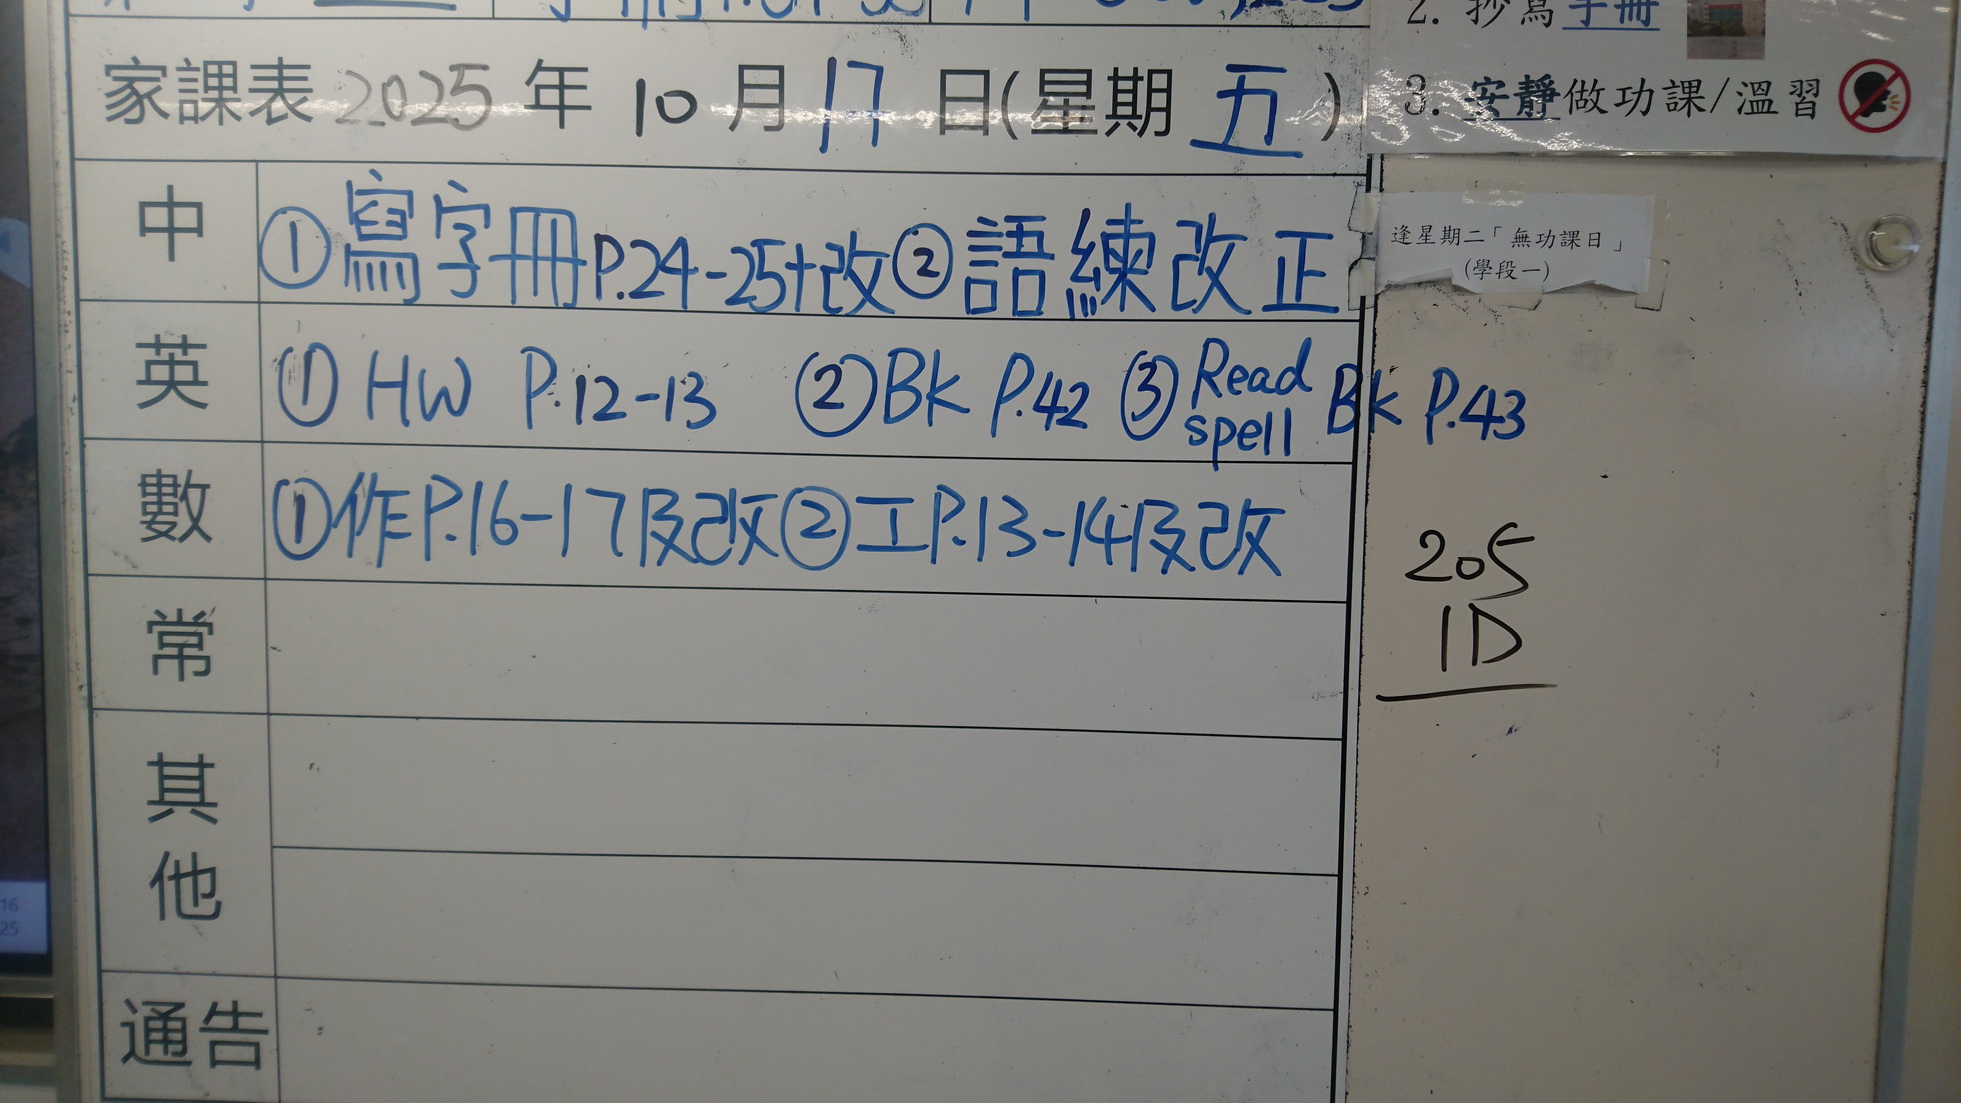 2. 抄寫手冊
家課表 2025 年 10 月 17 日(星期 五 )
3. 安靜做功課/溫習
中 ①寫字冊P.24-25+改②語練改正
逢星期二「無功課日」
(學段一)
英 ① HW P.12-13 ②BK P.42 ③ Read spell BK P.43
數 ①作P.16-17及改②工P.13-14及改
205
1D
常
其他
通告
16
25